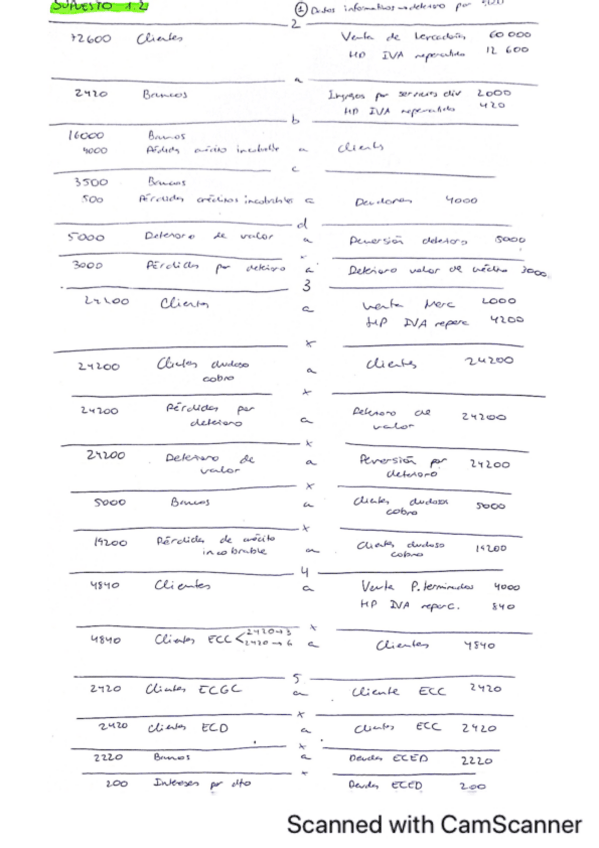 SUPUESTO 1.2
① Datos informativos → deterioro por 5000
2
72600 Clientes
Venta de Mercaderías 60 000
HP IVA repercutido 12 600
a
2420 Bancos
Ingresos por servicios div 2000
HP IVA repercutido 420
b
16000 Bancos
Pérdida crédito incobrable a Clientes
c
3500 Bancos
500 Pérdidas créditos incobrables a Deudores 4000
d
5000 Deterioro de valor a Reversión deterioro 5000
3000 Pérdidas por deterioro a Deterioro valor de crédito 3000
3
24200 Clientes a Venta Merc
HP IVA reperc 4200
x
24200 Clientes dudoso cobro a Clientes 24200
x
24200 Pérdidas por deterioro a Deterioro de valor 24200
x
24200 Deterioro de valor a Reversión por deterioro 24200
x
5000 Bancos a Clientes dudoso cobro 5000
x
19200 Pérdidas de crédito incobrable a Clientes dudoso cobro 19200
4
4840 Clientes a Venta P. terminados 4000
HP IVA reperc. 840
x
4840 Clientes ECC < 2420→3 2420→6 a Clientes 4840
5
2420 Clientes ECGC a Cliente ECC 2420
x
2420 Clientes ECD a Clientes ECC 2420
x
2220 Bancos a Deudas ECED 2220
x
200 Intereses por dto Deudas ECED 200
Scanned with CamScanner